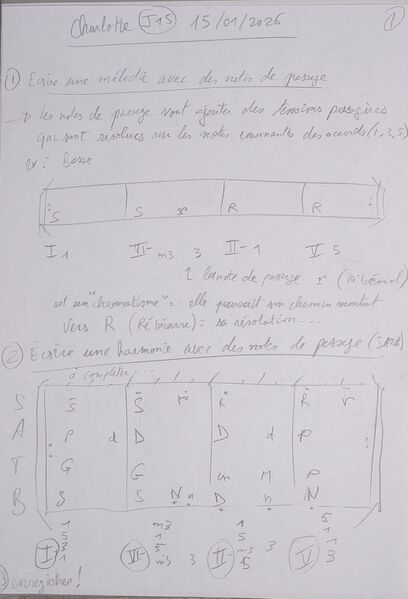 Charlotte I15 15/01/2026
1
① Ecrire une mélodie avec des notes de passage
→ Les notes de passage vont ajouter des tensions passagères
qui sont résolues sur les notes courantes des accords (1, 3, 5)
ex : Basse
S S R R
I 1 VI- m3 3 II- 1 V 5
↑ la note de passage r (Ré bémol)
est un "chromatisme" = elle poursuit son chemin montant
vers R (Ré bécarre) = sa résolution...
② Ecrire une harmonie avec des notes de passage (SATB)
à compléter...
S S S r R R r
A P d D D d P
T G G m M P
B S S N n D n N
1 m3 1 5
5 1 5 1
3 5 m3 1
I 1 VI- m3 3 II- 5 V 3
enregistrer !